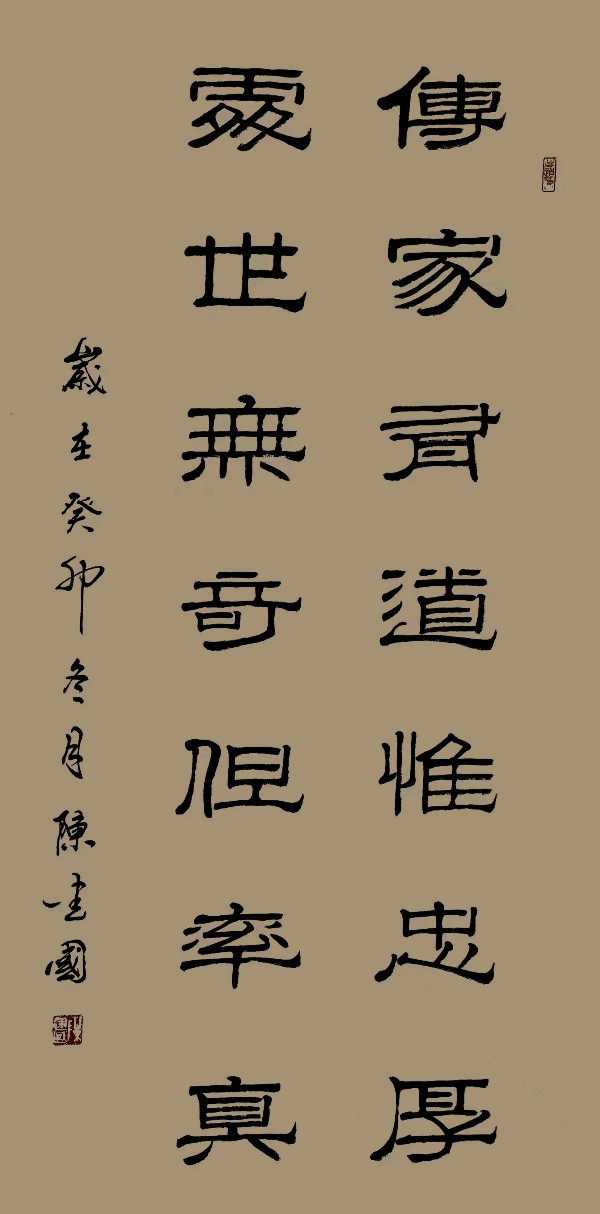 傳家有道惟忠厚
處世無奇但率真
歲在癸卯冬月陳國